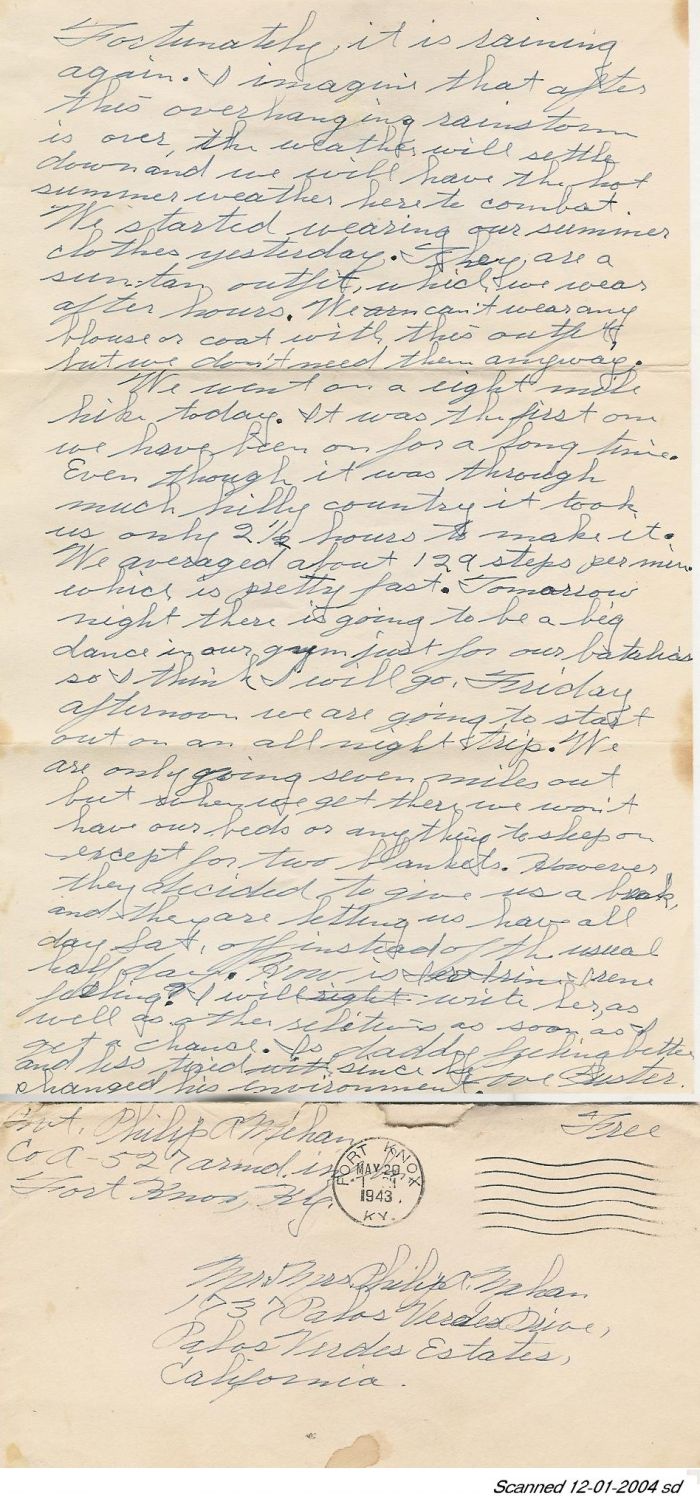 Fortunately, it is raining
again. I imagine that after
this overhanging rainstorm
is over, the weather will settle
down and we will have the hot
summer weather here to combat.
We started wearing our summer
clothes yesterday. They are a
sun-tan outfit, which we wear
after hours. We arn can't wear any
blouse or coat with this outfit
but we don't need them anyway.
We went on a eight mile
hike today. It was the first one
we have been on for a long time.
Even though it was through
much hilly country it took
us only 2 1/2 hours to make it.
We averaged about 129 steps per min.
which is pretty fast. Tomorrow
night there is going to be a big
dance in our gym just for our batalion
so I think I will go. Friday
afternoon we are going to start
out on an all night trip. We
are only going seven miles out
but when we get there we won't
have our beds or anything to sleep on
except for two blankets. However
they decided to give us a break,
and they are letting us have all
day Sat. off instead of the usual
half day. How is Irene
feeling? I will right write her, as
well as other relitives as soon as I
get a chance. Is daddy feeling better
and less tired with since he
changed his environment. Love Buster.
Pvt. Philip R Mehan
Free
Co A - 527 armd. inf.
Fort Knox, Ky.
FORT KNOX
MAY 20
1943
KY.
Mr & Mrs. Philip R. Mehan
1737 Palos Verdes Drive,
Palos Verdes Estates,
California.
Scanned 12-01-2004 sd